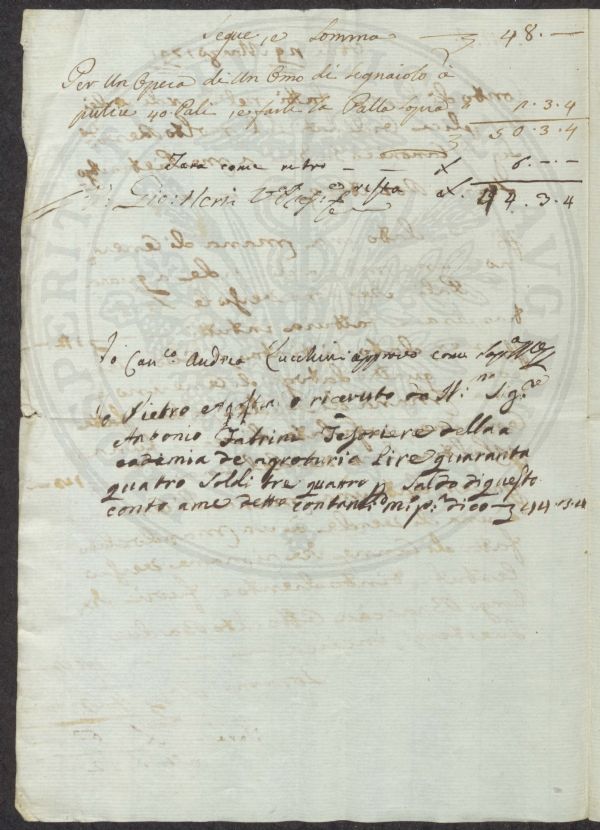 Segue, e Somma 48. —
Per Un Opera di Un Omo di Legnaiolo à
pulire 40 Pali, e fare la Palla sopra . 3. 4
50. 3. 4
Tara come retro 6. —. —
resta 44. 3. 4
Io Can.co Andrea Zucchini approvo come sopra
Io Pietro o ricevuto da Il Sig.re
Antonio Fabrini Tesoriere della a
cademia de agroturia Lire quaranta
quatro Soldi tre quattro p Saldo di questo
conto a me detto contanti m.o p.a dico 44. 3. 4